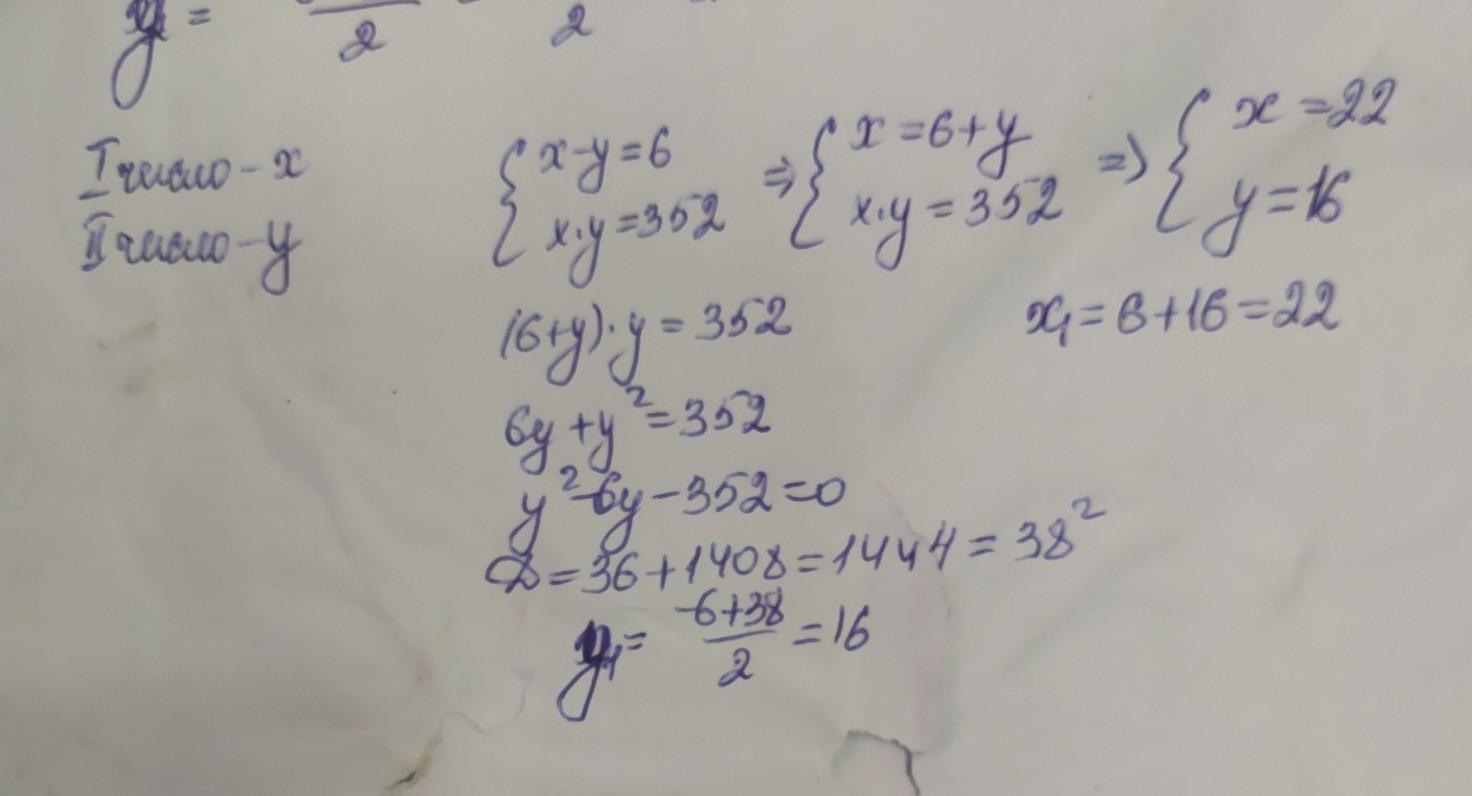 y = 2 2
I число - x
II число - y
{ x - y = 6 => { x = 6 + y => { x = 22
x · y = 352 x · y = 352 y = 16
(6+y) · y = 352 x₁ = 6 + 16 = 22
6y + y² = 352
y² - 6y - 352 = 0
D = 36 + 1408 = 1444 = 38²
y₁ = -6+38 / 2 = 16